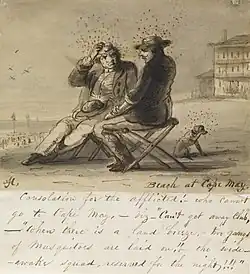 Beach at Cape May.
Consolation for the afflicted! who can't
go to Cape May, — viz — Can't get away Club,
— "When there is a land breeze, big games
of Musquitoes are laid on", the wide
awake squad, reserved for the night, !!!"